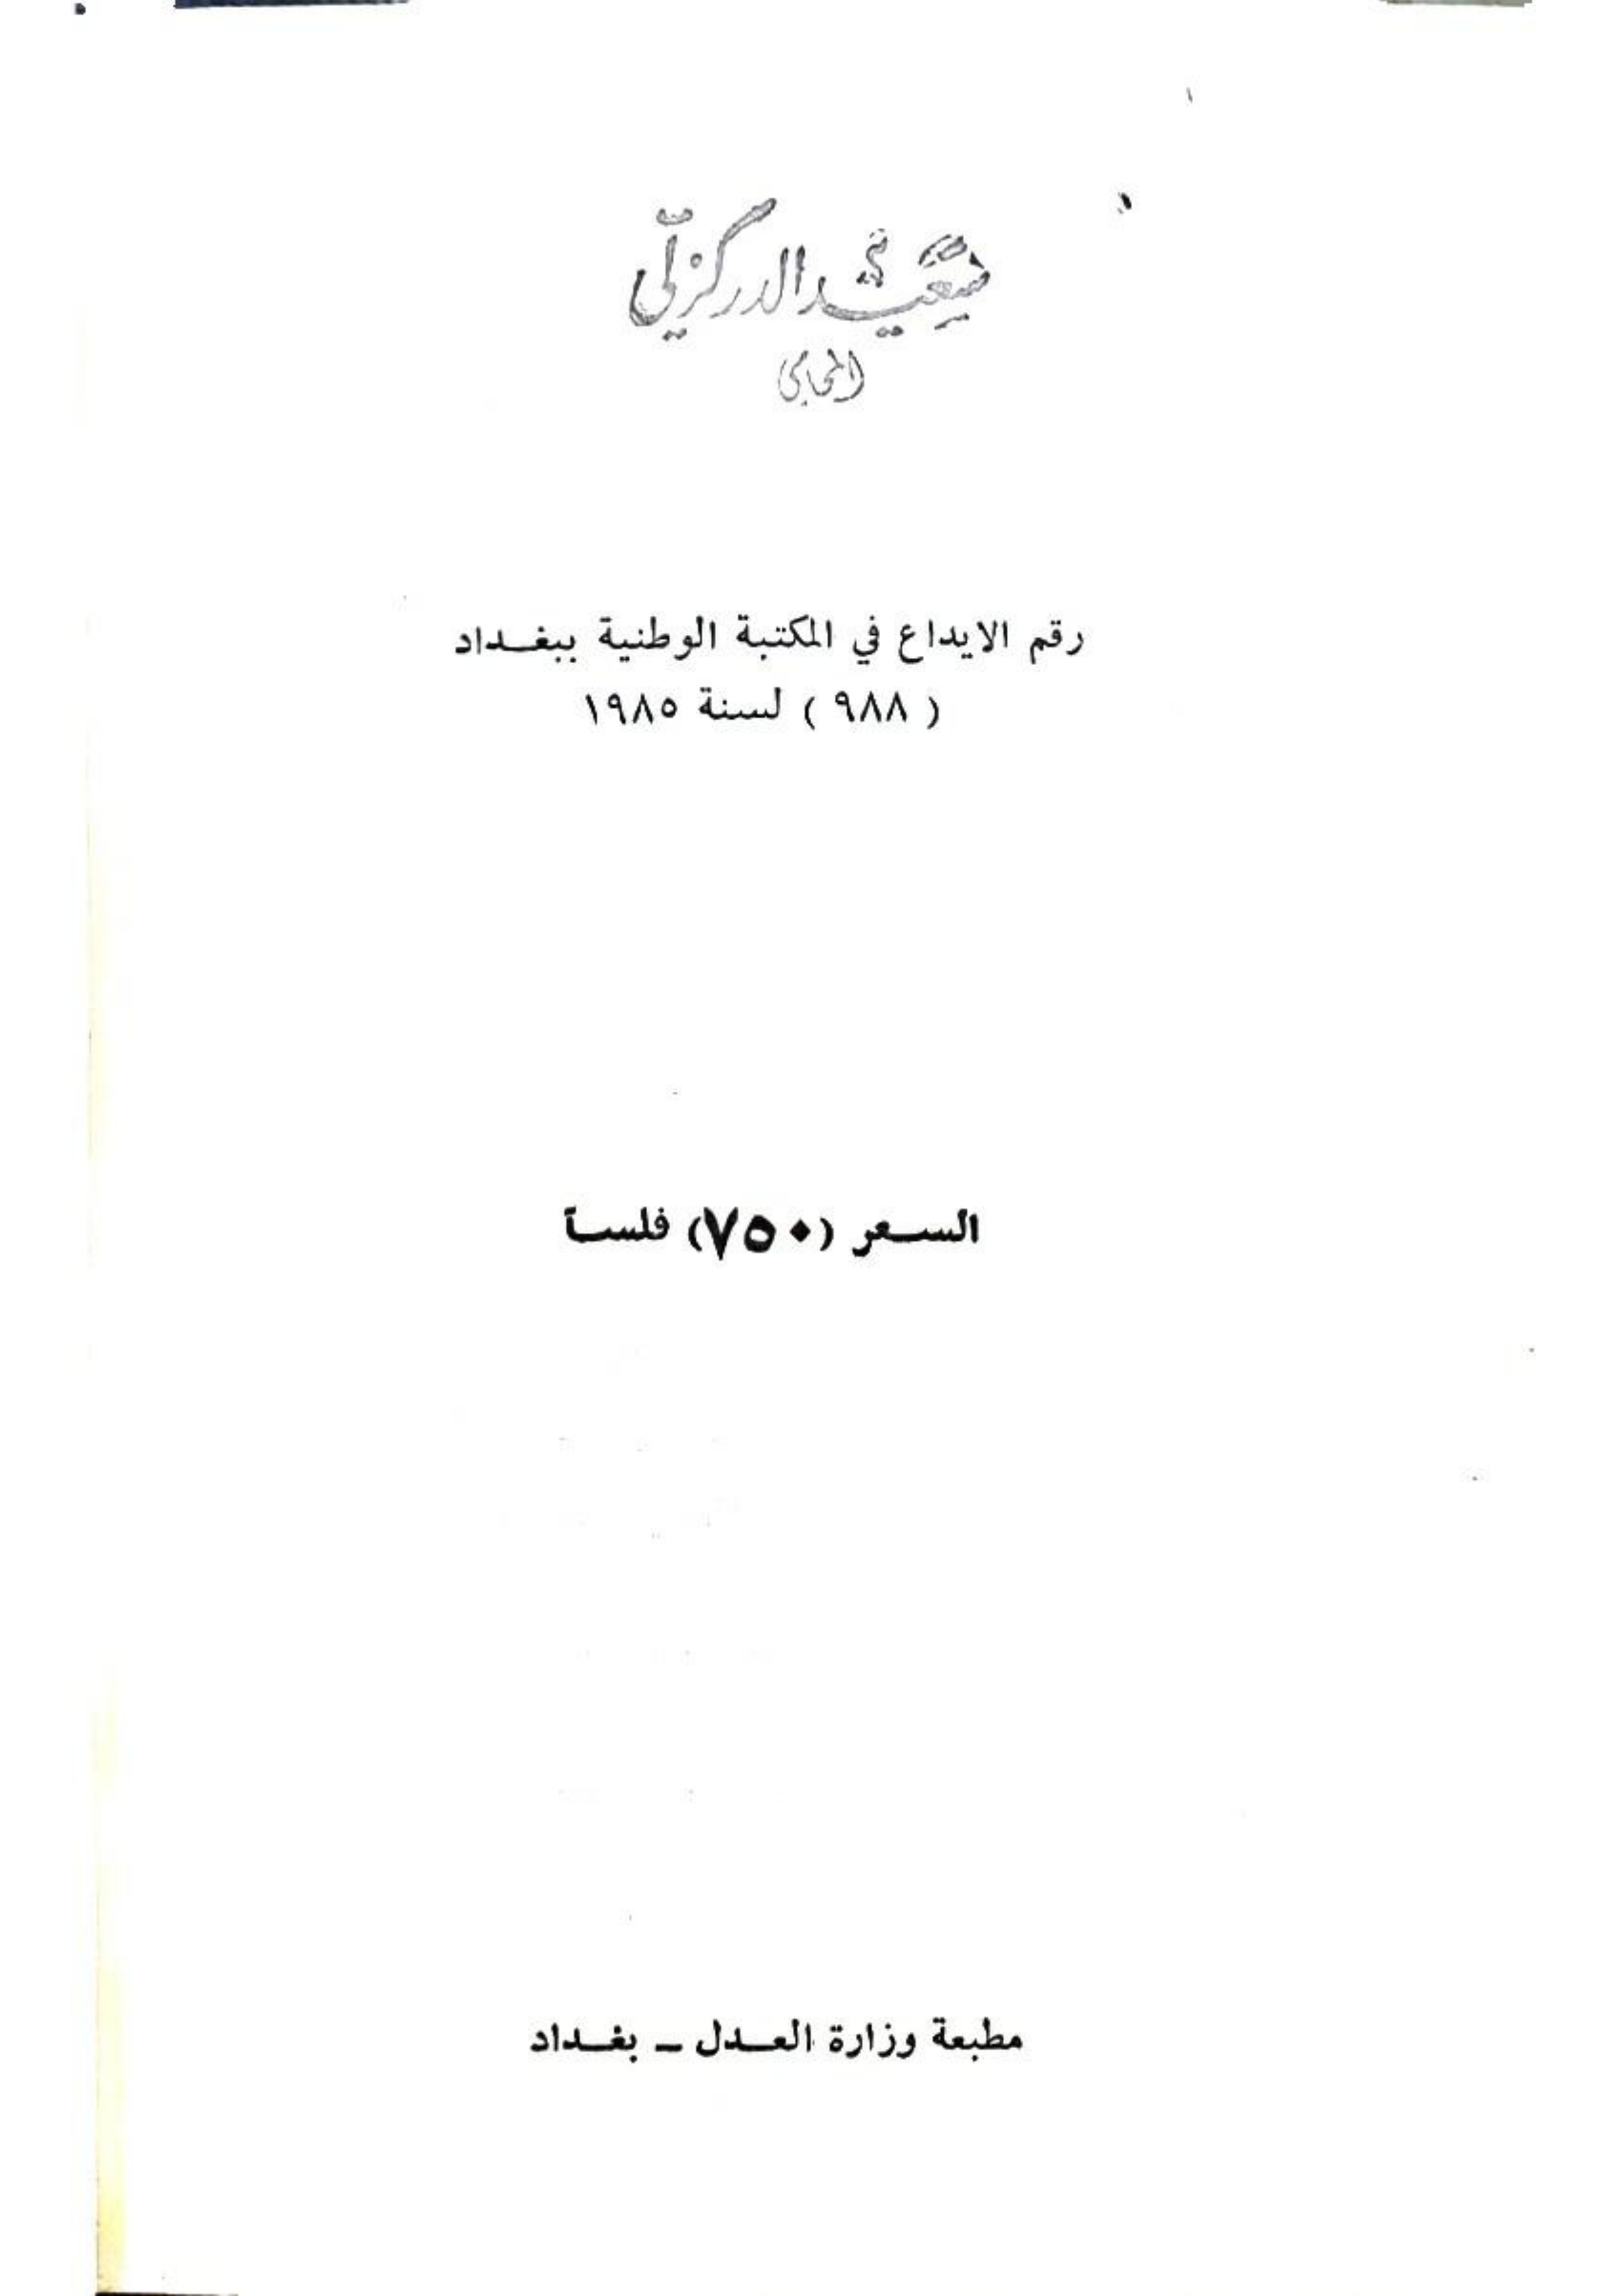 سعيد الدركزلي
المحامي
رقم الايداع في المكتبة الوطنية ببغداد
( ٩٨٨ ) لسنة ١٩٨٥
السعر (٧٥٠) فلساً
مطبعة وزارة العدل ـ بغداد